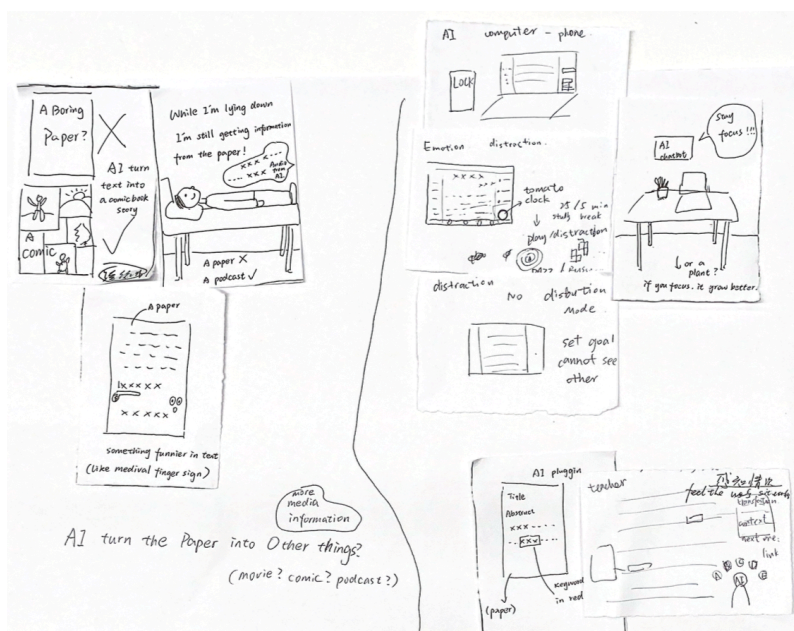 A Boring
Paper?
AI turn
text into
a comic book
story
A
comic
While I'm lying down
I'm still getting information
from the paper!
xxx
xxx
Audio
from
AI
A paper X
A podcast ✓
A paper
xxxxx
xxxxx
something funnier in text
(like medival finger sign)
more
media
information
AI turn the Paper into Other things?
(movie? comic? podcast?)
AI computer - phone
LOCK
Emotion distraction.
xxxx
tomato
clock
25/5 min
study break
play/distraction
distraction
No
mode.
set goal
cannot see
other
stay
focus!!!
AI
chatbot
or a
plant?
if you focus. it grow better.
AI pluggin
Title
Abstract
xxx
xxx
keyword
in red
(paper)
teacher
feel the
context
next one:
link
AI